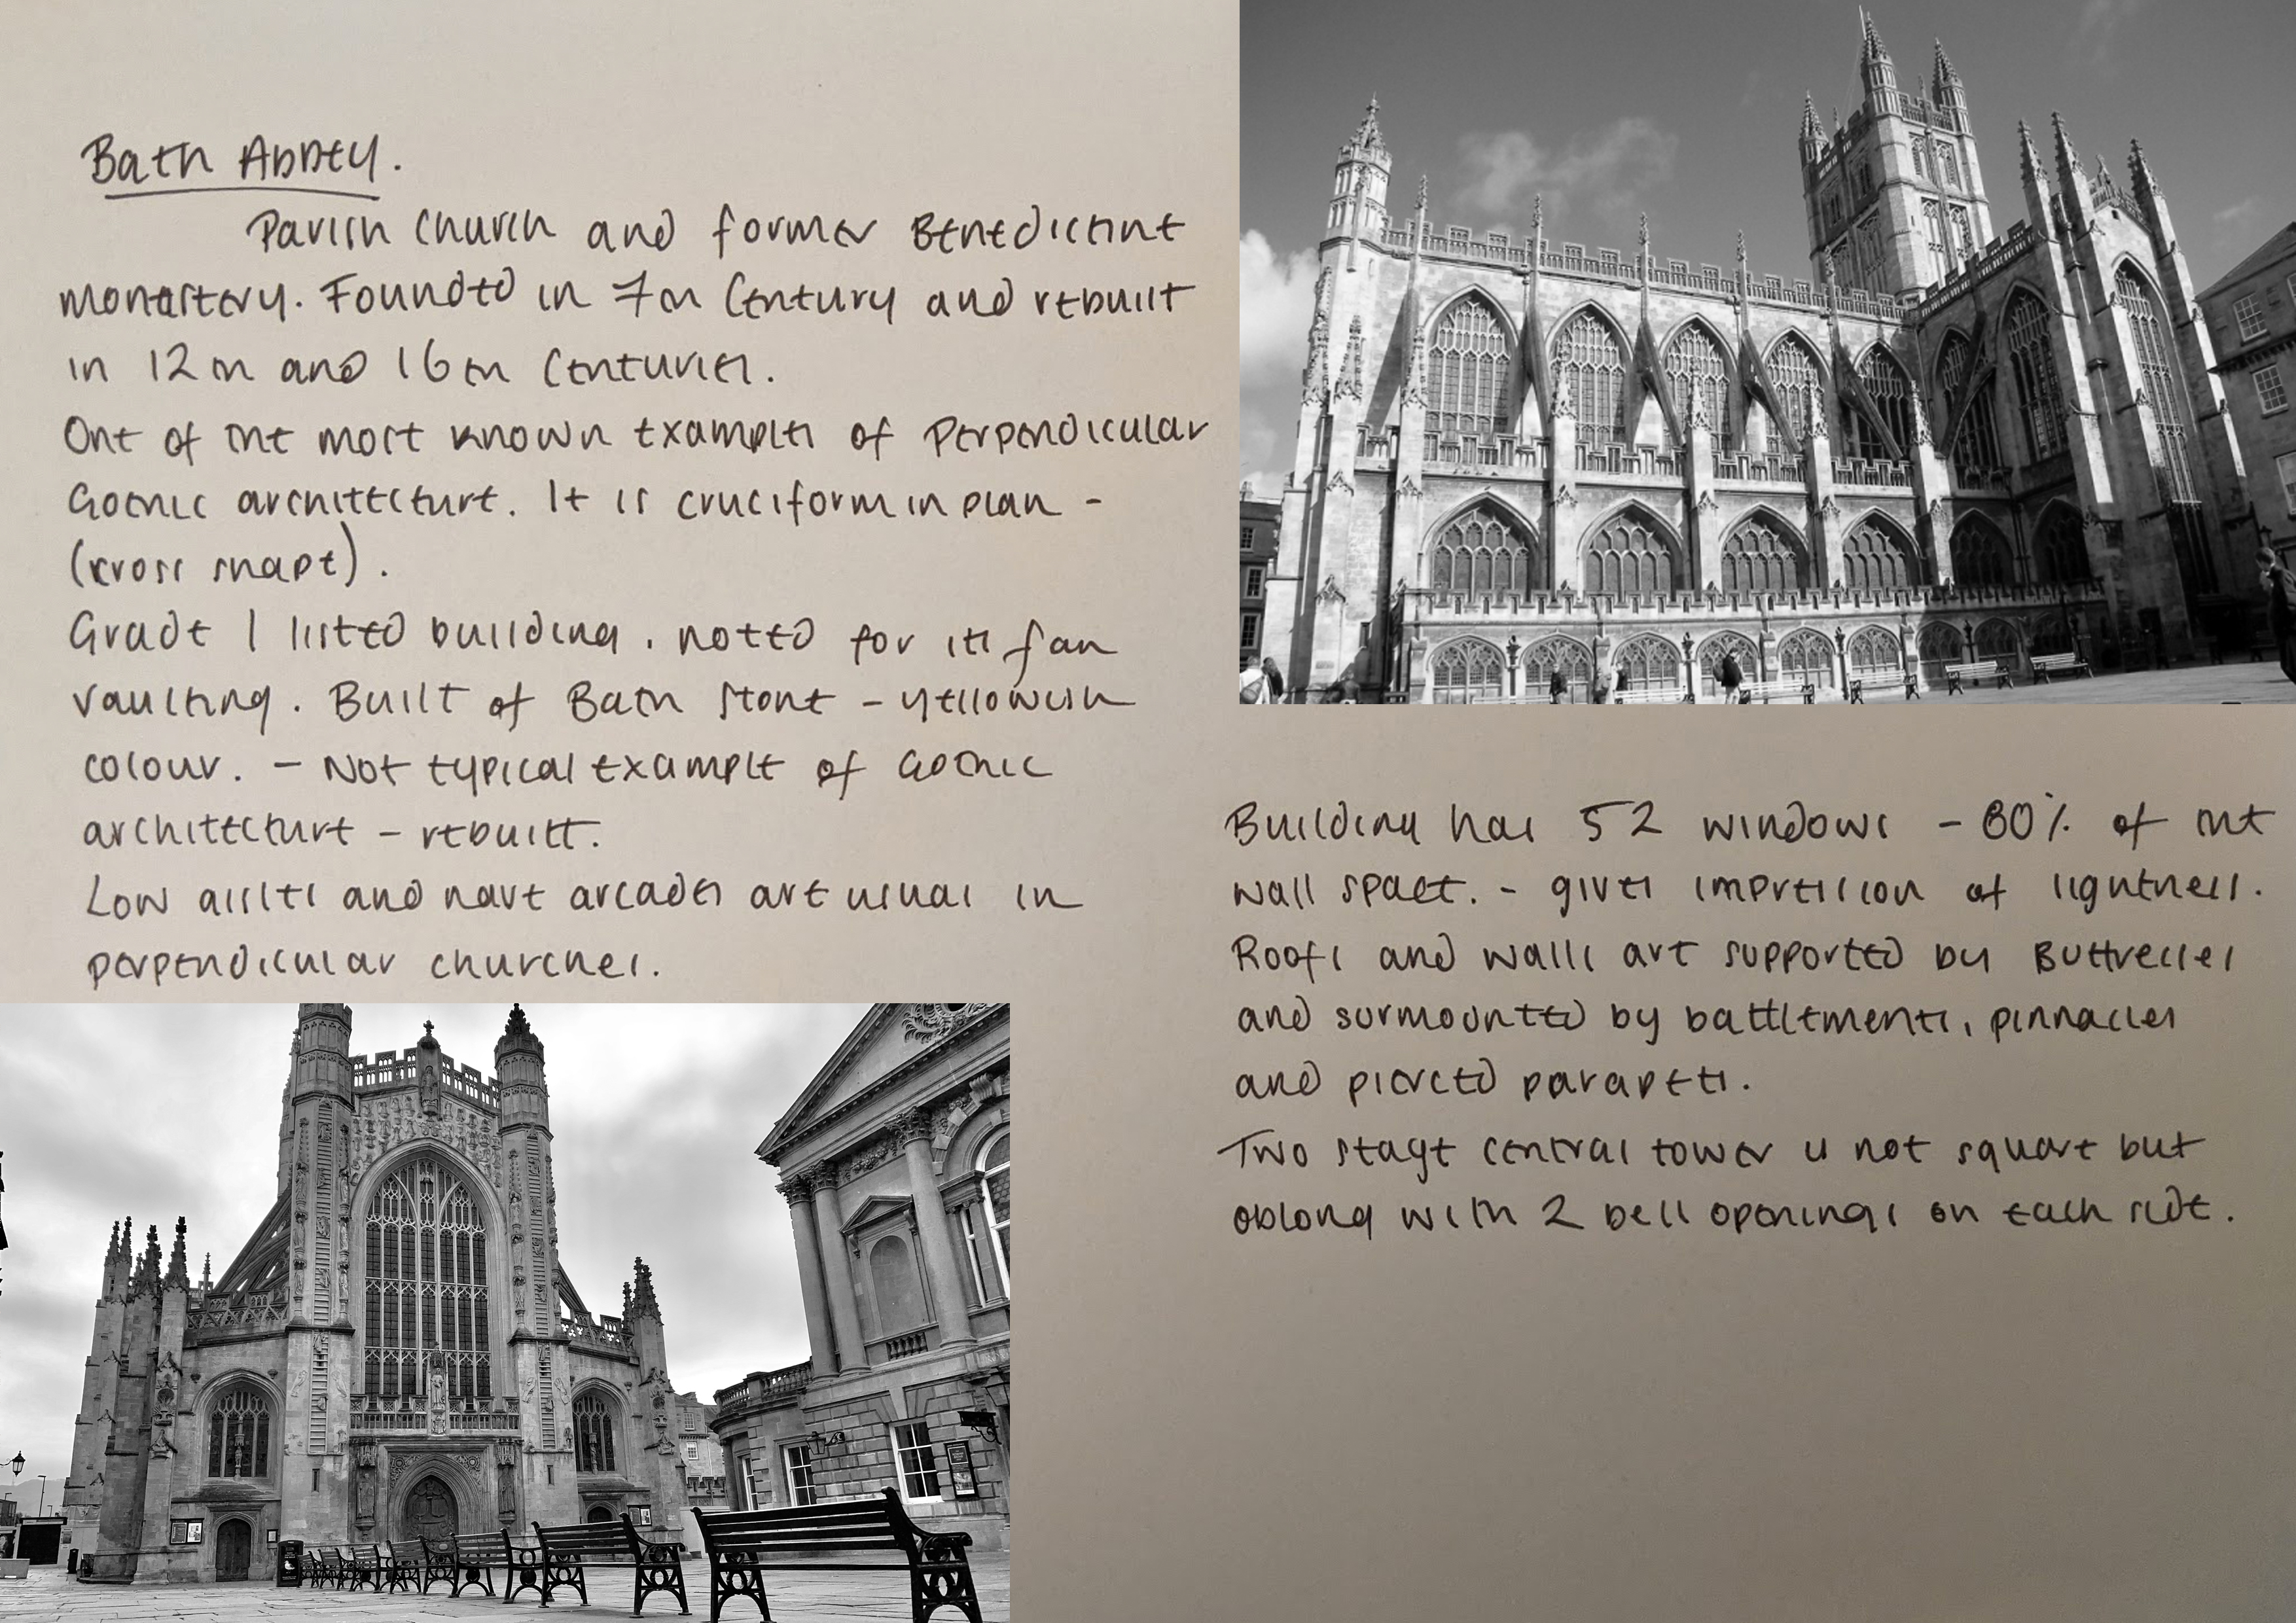 Bath Abbey.
Parish church and former Benedictine
monastery. Founded in 7th Century and rebuilt
in 12th and 16th Centuries.
One of the most known examples of Perpendicular
Gothic architecture. It is cruciform in plan -
(cross shape).
Grade 1 listed building, noted for its fan
vaulting. Built of Bath Stone - yellowish
colour. - Not typical example of Gothic
architecture - rebuilt.
Low aisles and nave arcades are usual in
perpendicular churches.
Building has 52 windows - 80% of the
wall space. - gives impression of lightness.
Roofs and walls are supported by Buttresses
and surmounted by battlements, pinnacles
and pierced parapets.
Two stage central tower is not square but
oblong with 2 bell openings on each side.